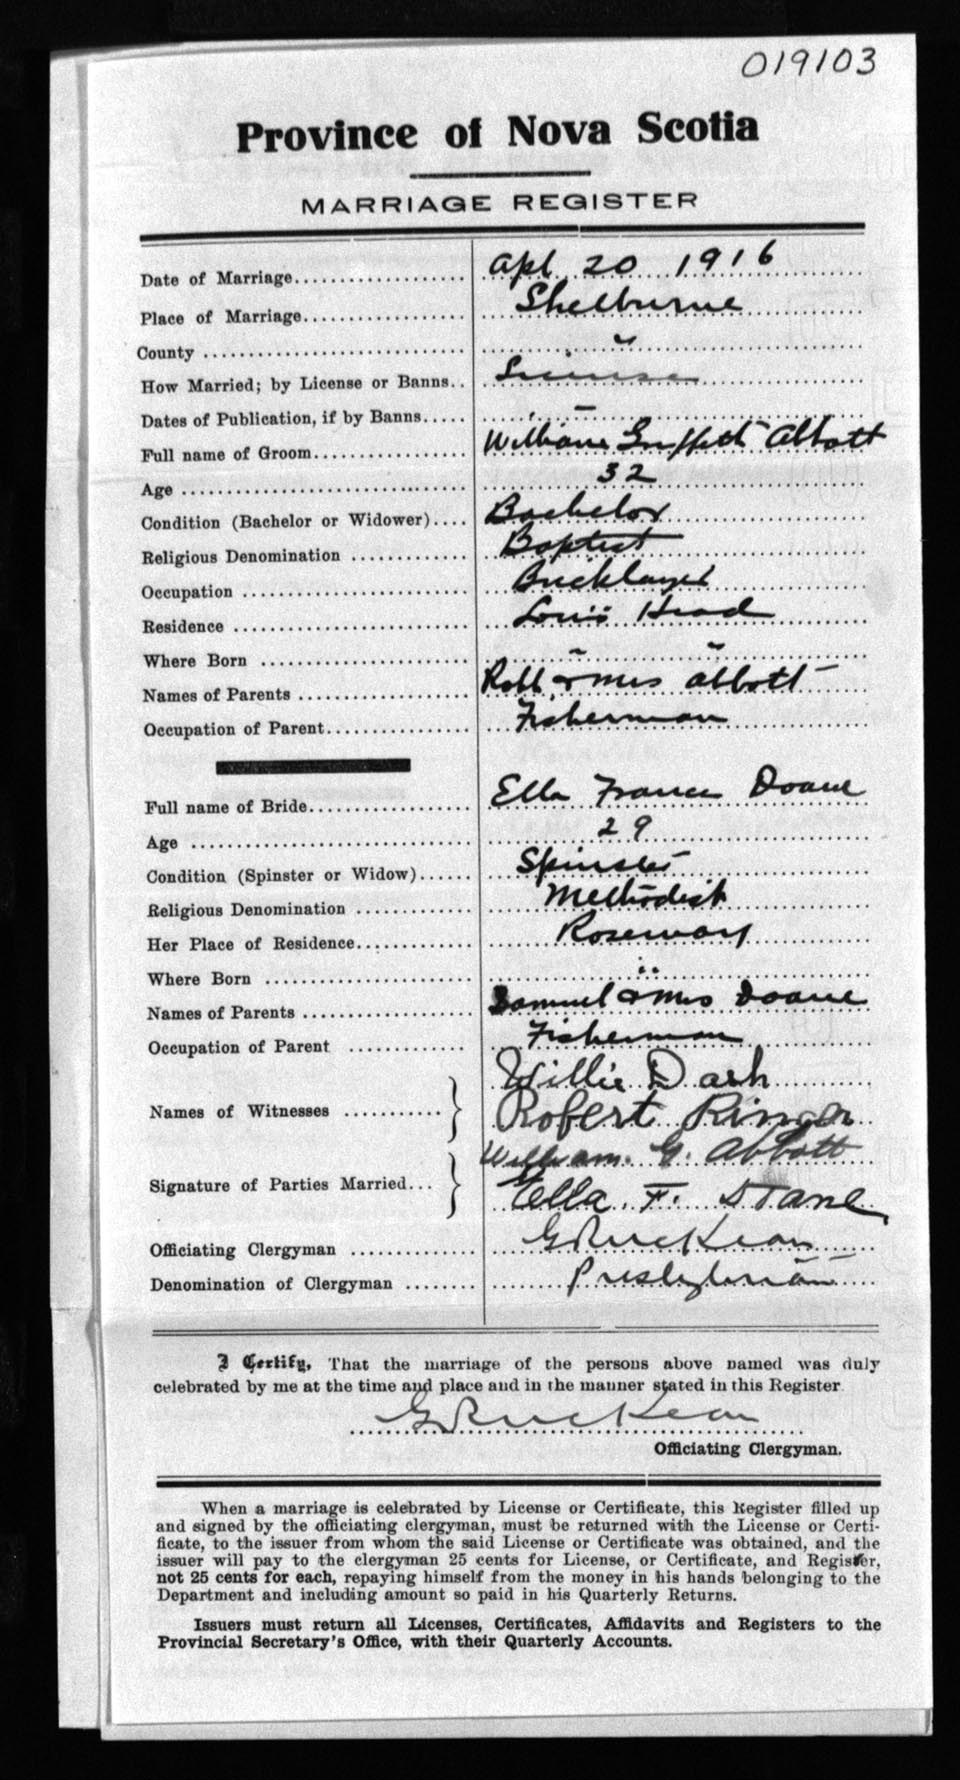 019103
Province of Nova Scotia
MARRIAGE REGISTER
Date of Marriage Apl 20 1916
Place of Marriage Shelburne
County "
How Married; by License or Banns License
Dates of Publication, if by Banns —
Full name of Groom William Griffeth Abbott
Age 32
Condition (Bachelor or Widower) Bachelor
Religious Denomination Baptist
Occupation Bricklayer
Residence Louis Head
Where Born " "
Names of Parents Robt & Mrs Abbott
Occupation of Parent Fisherman
Full name of Bride Ella Frances Doane
Age 29
Condition (Spinster or Widow) Spinster
Religious Denomination Methodist
Her Place of Residence Roseway
Where Born "
Names of Parents Samuel & Mrs Doane
Occupation of Parent Fisherman
Names of Witnesses Willie Dash
Robert Ringer
Signature of Parties Married William. G. Abbott
Ella. F. Doane
Officiating Clergyman
Denomination of Clergyman Presbyterian
I Certify, That the marriage of the persons above named was duly
celebrated by me at the time and place and in the manner stated in this Register
Officiating Clergyman.
When a marriage is celebrated by License or Certificate, this Register filled up
and signed by the officiating clergyman, must be returned with the License or Certi-
ficate, to the issuer from whom the said License or Certificate was obtained, and the
issuer will pay to the clergyman 25 cents for License, or Certificate, and Register,
not 25 cents for each, repaying himself from the money in his hands belonging to the
Department and including amount so paid in his Quarterly Returns.
Issuers must return all Licenses, Certificates, Affidavits and Registers to the
Provincial Secretary's Office, with their Quarterly Accounts.